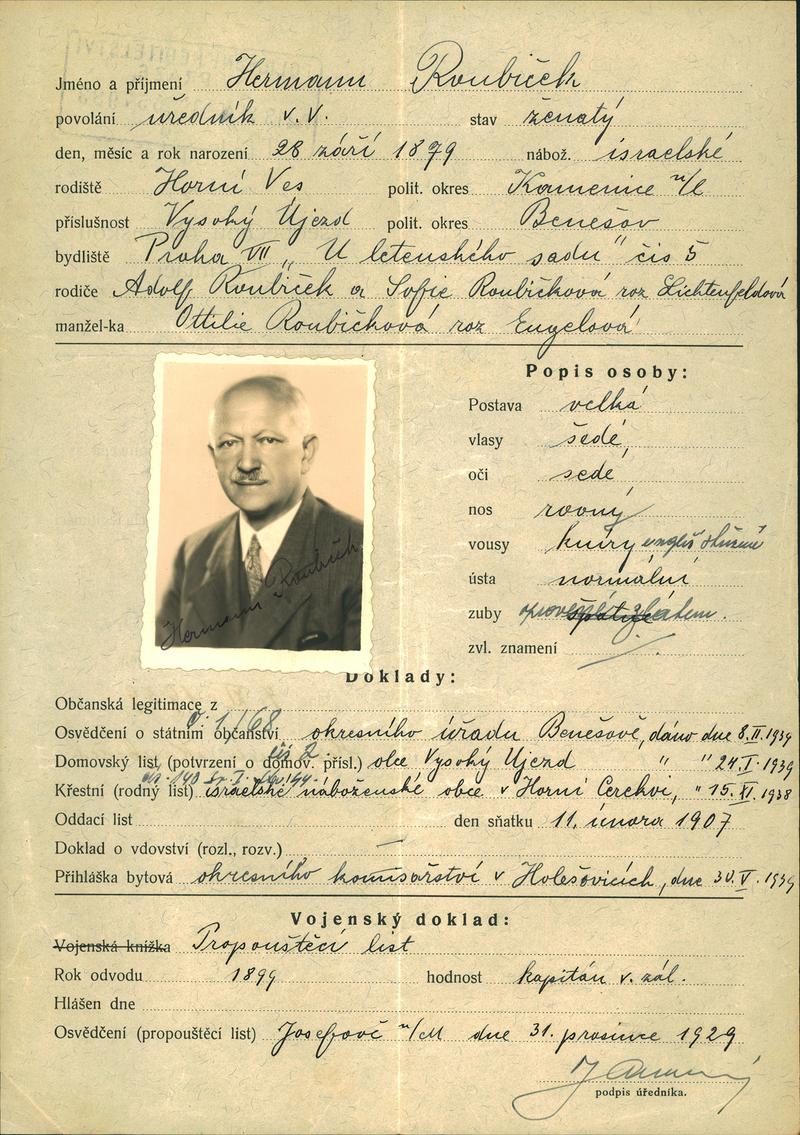 Jméno a příjmení Hermann Roubíček
povolání úředník v.v. stav ženatý
den, měsíc a rok narození 28 září 1879 nábož. israelské
rodiště Horní Ves polit. okres Kamenice n/L
příslušnost Vysoký Újezd polit. okres Benešov
bydliště Praha VII „U letenského sadu" čís 5
rodiče Adolf Roubíček a Sofie Roubíčková roz Lichtenfeldová
manžel-ka Ottilie Roubíčková roz Engelová
Popis osoby:
Postava velká
vlasy šedé,
oči šedé
nos rovný
vousy kníry
ústa normální
zuby zlatem.
zvl. znamení
Hermann Roubíček
Doklady:
Občanská legitimace z
Osvědčení o státním občanství okresního úřadu Benešově, dáno dne 8.II.1939
Domovský list (potvrzení o domov. přísl.) obce Vysoký Újezd " " 24.I.1939
Křestní (rodný list) israelské náboženské obce v Horní Cerekvi, " 15.XI.1938
Oddací list den sňatku 11. února 1907
Doklad o vdovství (rozl., rozv.) —
Přihláška bytová okresního komisařství v Holešovicích, dne 30.V.1939
Vojenský doklad:
Vojenská knížka Propouštěcí list
Rok odvodu 1899 hodnost kapitán v. zál.
Hlášen dne
Osvědčení (propouštěcí list) Josefově n/M dne 31. prosince 1929
podpis úředníka.